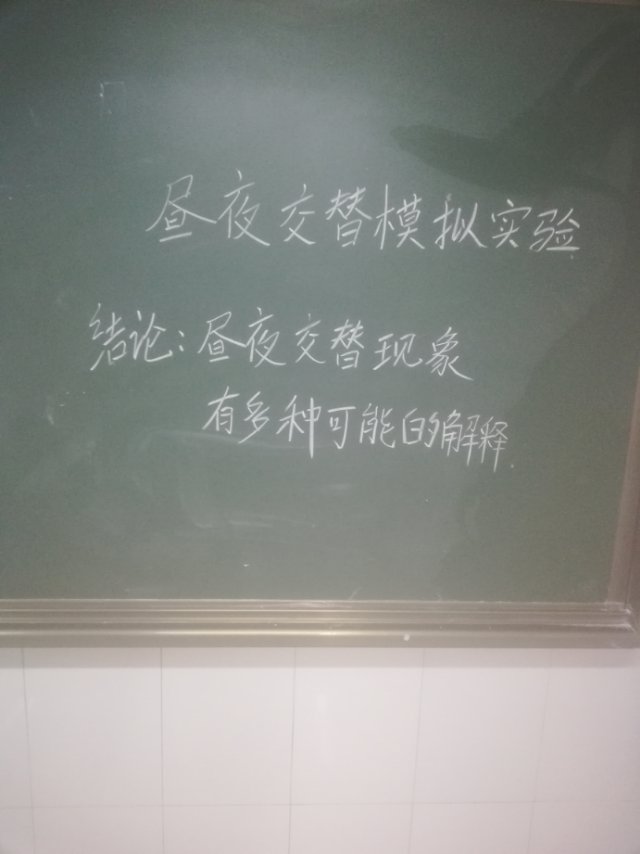 昼夜交替模拟实验
结论:昼夜交替现象
有多种可能的解释